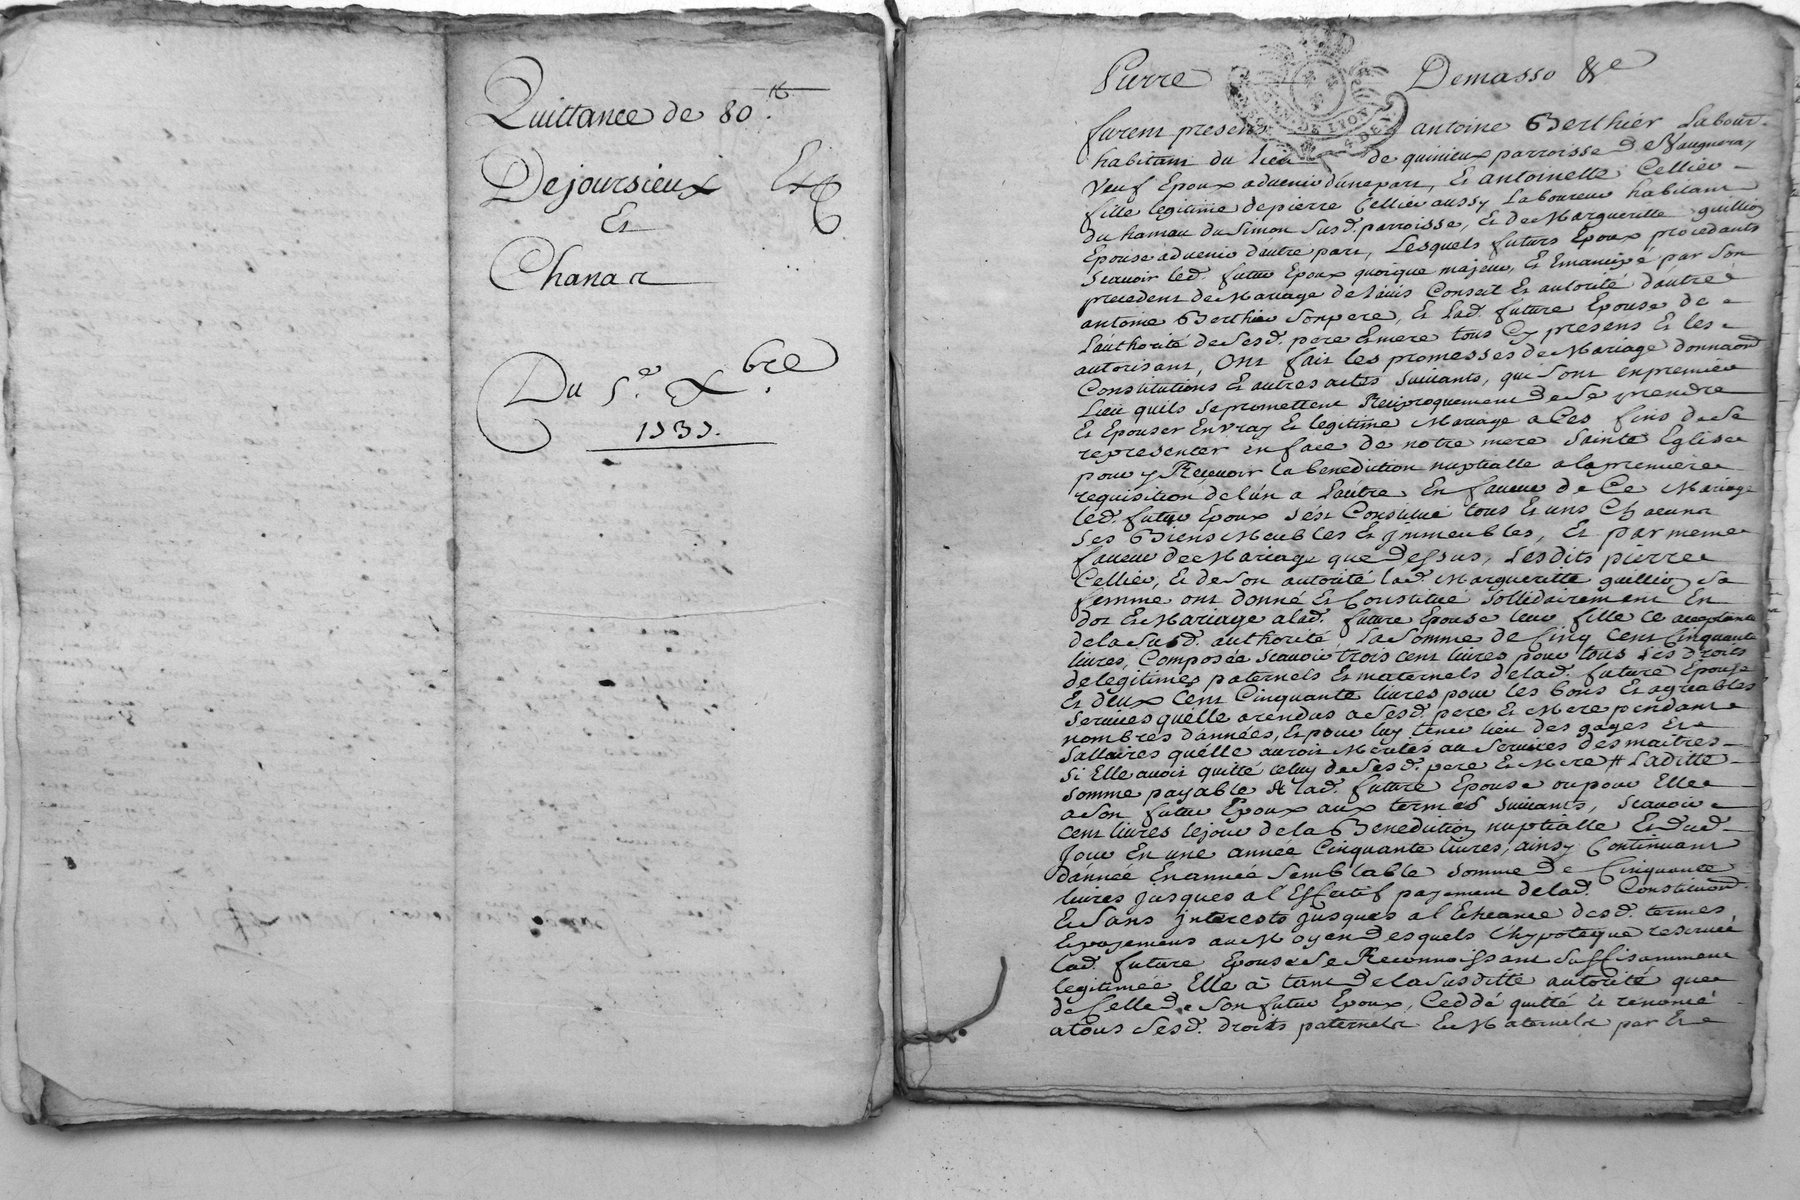 Quittance de 80 ₶.
Dejoursieux Exp
Et
Chanaz
Du 5.e Xbre
1737.
Pierre Demasso &c
furent presens antoine Berthier Labour.
habitant du lieu de quinieux parroisse de Vaugneray
veuf Epoux advenir d'une part, Et antoinette Cellier
fille legitime de pierre Cellier aussy Laboureur habitant
du hameau du Simon susd. parroisse, Et de Margueritte guillion
Epouse advenir d'autre part, Lesquels futurs Epoux procedants
scavoir led. futur Epoux quoique majeur, Et Emancipé par son
precedent de Mariage de l'avis Conseil Et autorité d'autre
antoine Berthier son pere, Et Lad. future Epouse de
L'authorité de sesd. pere Et mere tous Cy presens Et les
autorisant, Ont fait les promesses de Mariage donnaōns
Constitutions Et autres actes suivants, qui sont en premier
Lieu quils se promettent Reciproquement de se prendre
Et Epouser En vray Et legitime Mariage a Ces fins de se
representer en face de notre mere sainte Eglise
pour y Recevoir la benediction nuptialle a la premiere
requisition de l'un a L'autre En faveur de Ce Mariage
led. futur Epoux s'est Constitué tous Et uns Chacuns
ses Biens Meubles Et jmmeubles, Et par meme
faveur de Mariage que Dessus, Lesdits pierre
Cellier, Et de son autorité lad. Marguerite guillion sa
femme ont donné Et Constitué sollidairement En
dot Et Mariage a lad. future Epouse leur fille ce acceptante
de la susd. authorité La somme de Cinq Cent Cinquante
livres, Composée scavoir trois cent livres pour tous ses droits
de legitimes paternels Et maternels de lad. future Epouse
Et deux Cent Cinquante livres pour les bons Et agreables
services quelle a rendus a sesd. pere Et Mere pendant
nombres d'années, Et pour luy tenir lieu des gages Et
sallaires quélle auroit Merités au services des maitres
si Elle avoit quitté celuy de sesd. pere Et Mere # Laditte
somme payable a lad. future Epouse ou pour Elle
a son futur Epoux aux termes suivants, scavoir
cent livres le jour de la Benediction nuptialle Et dud.
Jour En une année Cinquante livres, ainsy Continuant
d'année En année semblable somme de Cinquante
livres jusques a l'Effectif payement de lad. Constituōn
Et sans jnterests jusques a l'Echeance desd. termes
Et payemens au Moyen desquels l'hypoteque reservée
Lad. future Epouse se Reconnoissant suffisamment
legitimée Elle à tant de la susditte autorité que
de Celle de son futur Epoux, Ceddé quitté Et renoncé
a tous sesd. droits paternels Et Maternels par Et